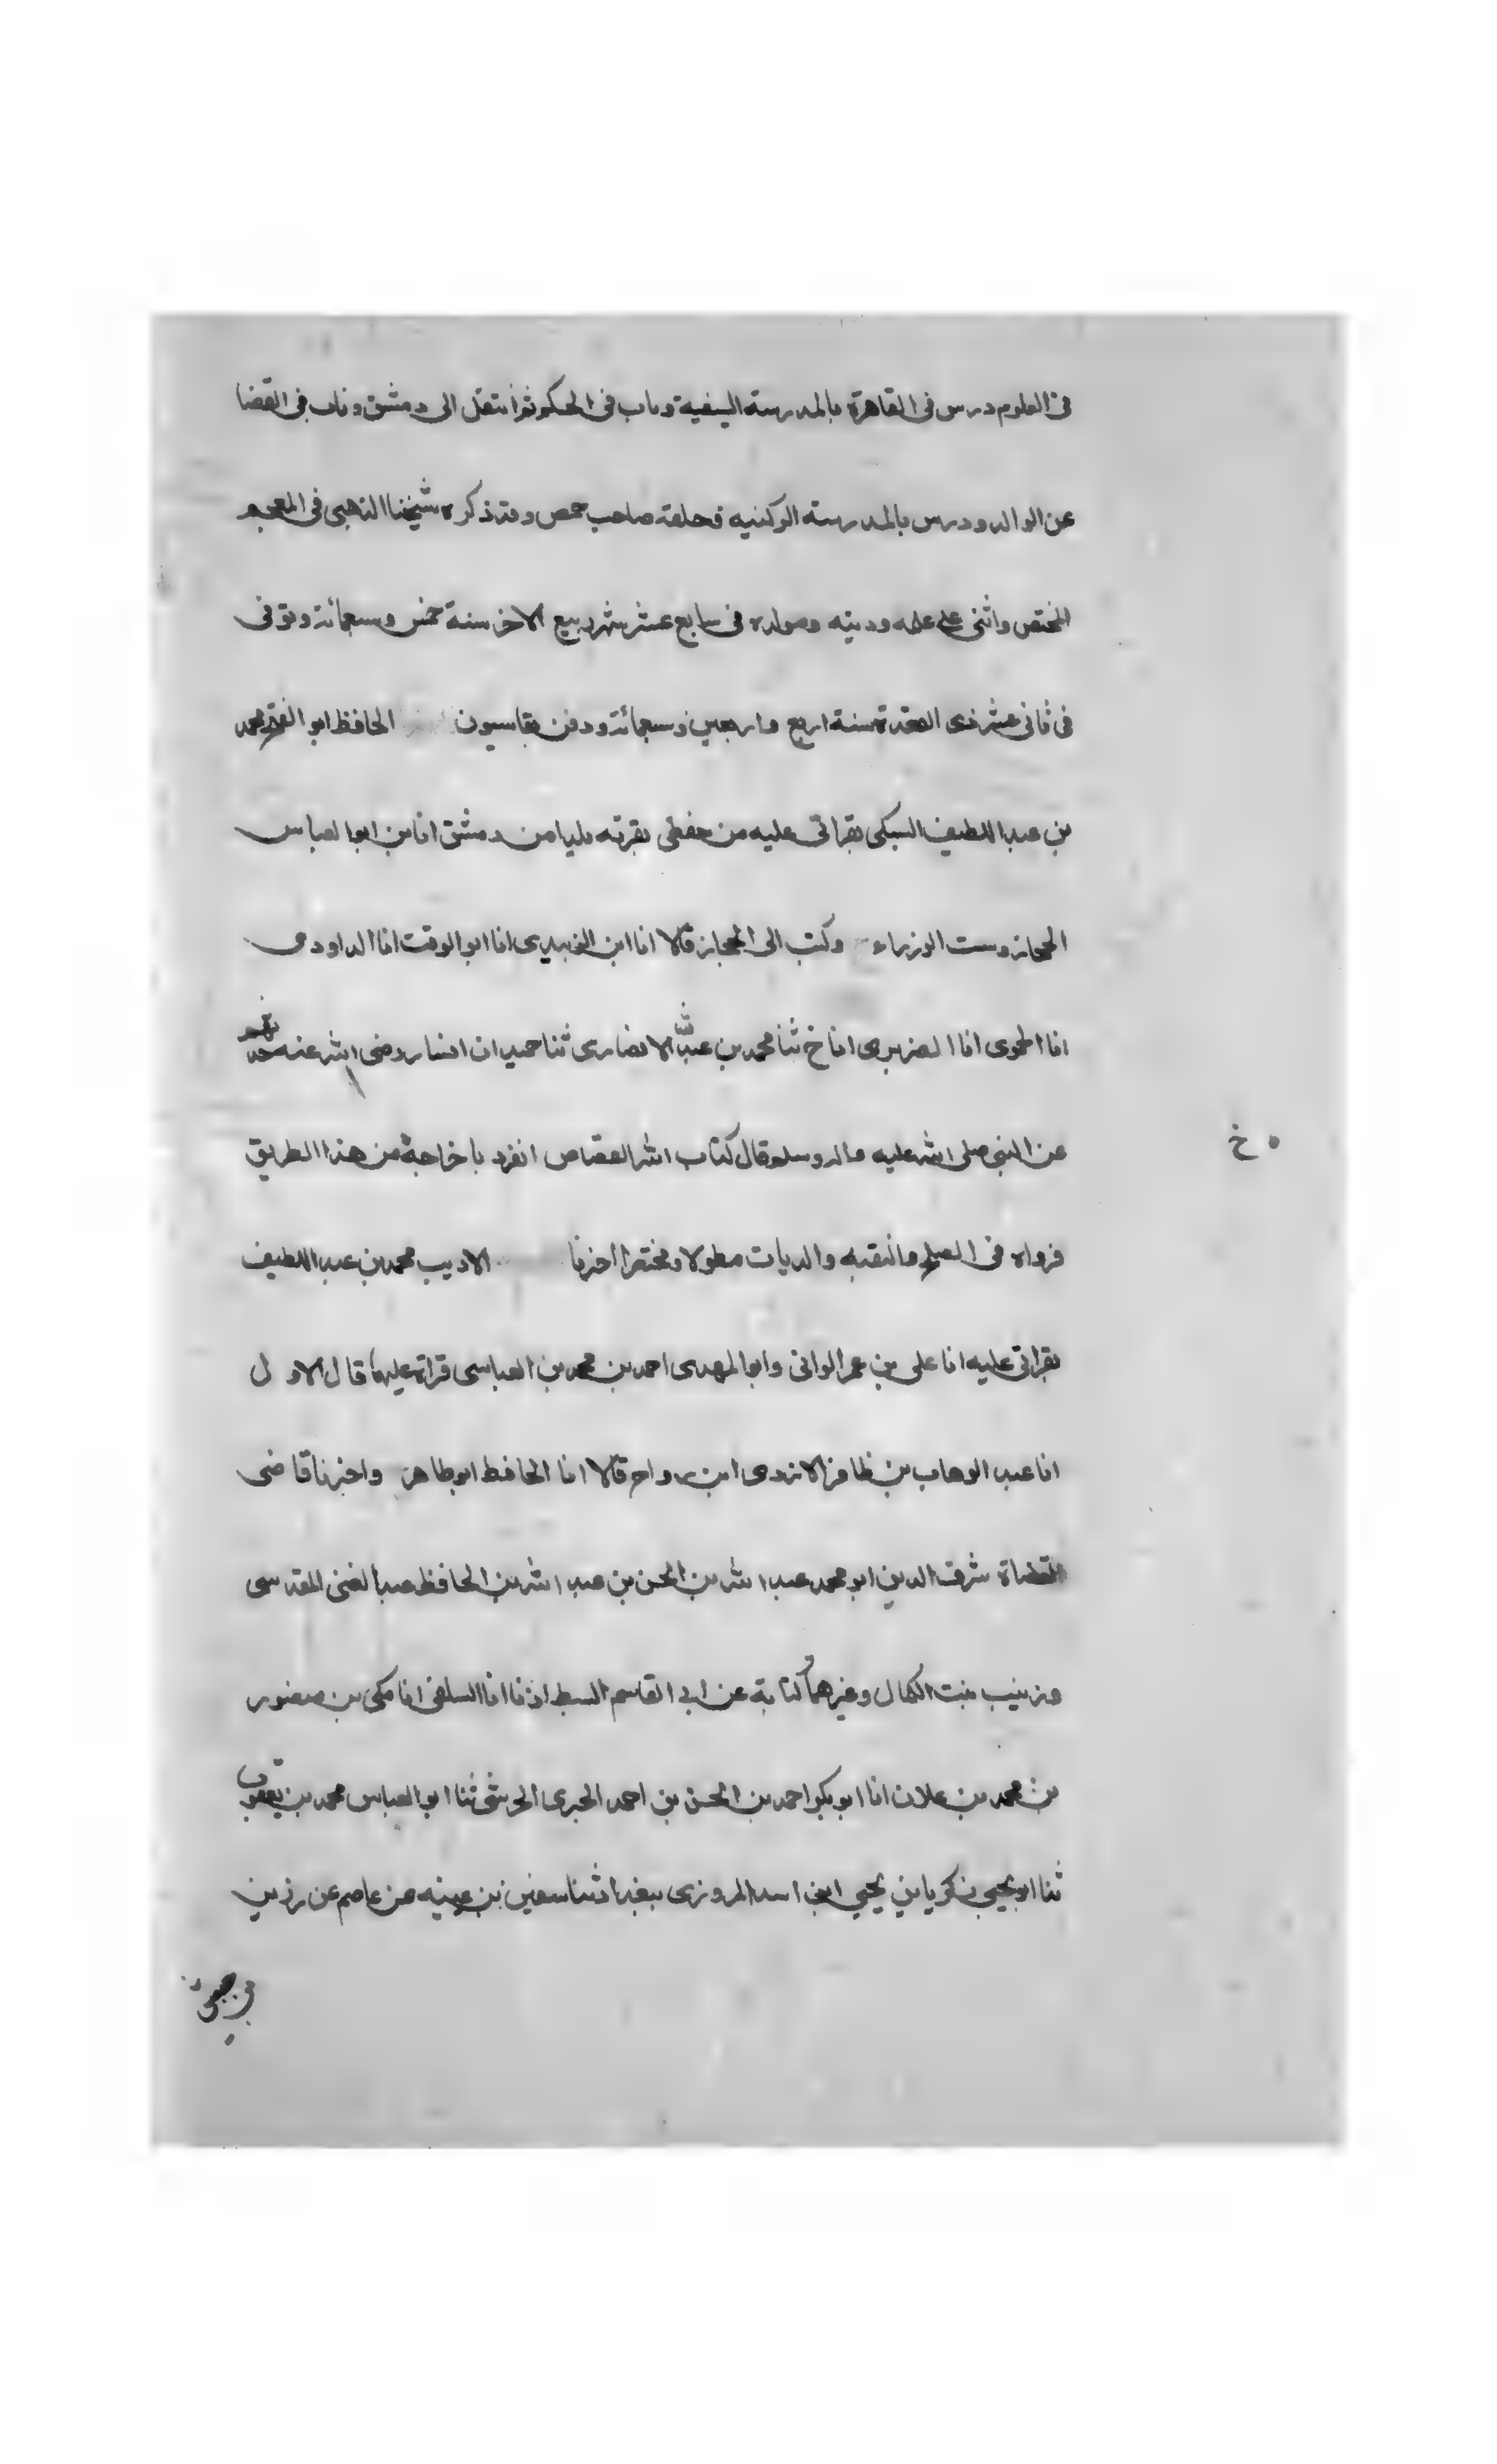 في العلوم درس في القاهرة بالمدرسة السيفية وناب في الحكم ثم انتقل الى دمشق وناب في القضا
عن الوالد ودرس بالمدرسة الركنيه فحلقة صاحب حمص وقد ذكره شيخنا الذهبي في المعجم
المختص واثنى على علمه ودينه ومولده في سابع عشر شهر ربيع الاخر سنة خمس وسبعمائة وتوفي
في ثاني عشر ذى القعدة سنة اربع واربعين وسبعمائة ودفن بقاسيون الحافظ ابو الفتح محمد
بن عبد اللطيف السبكي بقراتي عليه من حفظي بقرية يلدا من دمشق انا بن ابو العباس
الحجار وست الوزراء وكتب الى الحجار قالا انا ابن الزبيدي انا ابو الوقت انا الداودى
انا الحموى انا الفربرى انا خ ثنا محمد بن عبد الله الانصارى ثنا حميد ان انسا رضى الله عنه حدثهم
عن النبي صلى الله عليه واله وسلم قال كتاب الله القصاص انفرد باخراجه من هذا الطريق
خ ٥
فرواه في الصلح والتفسير والديات مطولا ومختصرا اخبرنا الاديب محمد بن عبد اللطيف
بقراتي عليه انا على بن عمر الواني وابو الهدى احمد بن محمد بن العباسى قراة عليهما قال الاول
انا عبد الوهاب بن ظافر الازدى ابن رواح قالا انا الحافظ ابو طاهر واخبرنا قاضى
القضاة شرف الدين ابو محمد عبد الله بن الحسن بن عبد الله بن الحافظ عبد الغنى المقدسى
وزينب بنت الكمال وغيرهما كتابة عن ابي القاسم السبط اذنا انا السلفى انا مكى بن منصور
بن محمد بن علان انا ابو بكر احمد بن الحسن بن احمد الحيرى الحرشى ثنا ابو العباس محمد بن يعقوب
ثنا ابو يحيى زكريا بن يحيى ابن اسد المروزى ببغداد ثنا سفين بن عيينه عن عاصم عن زر بن
بن حبيش